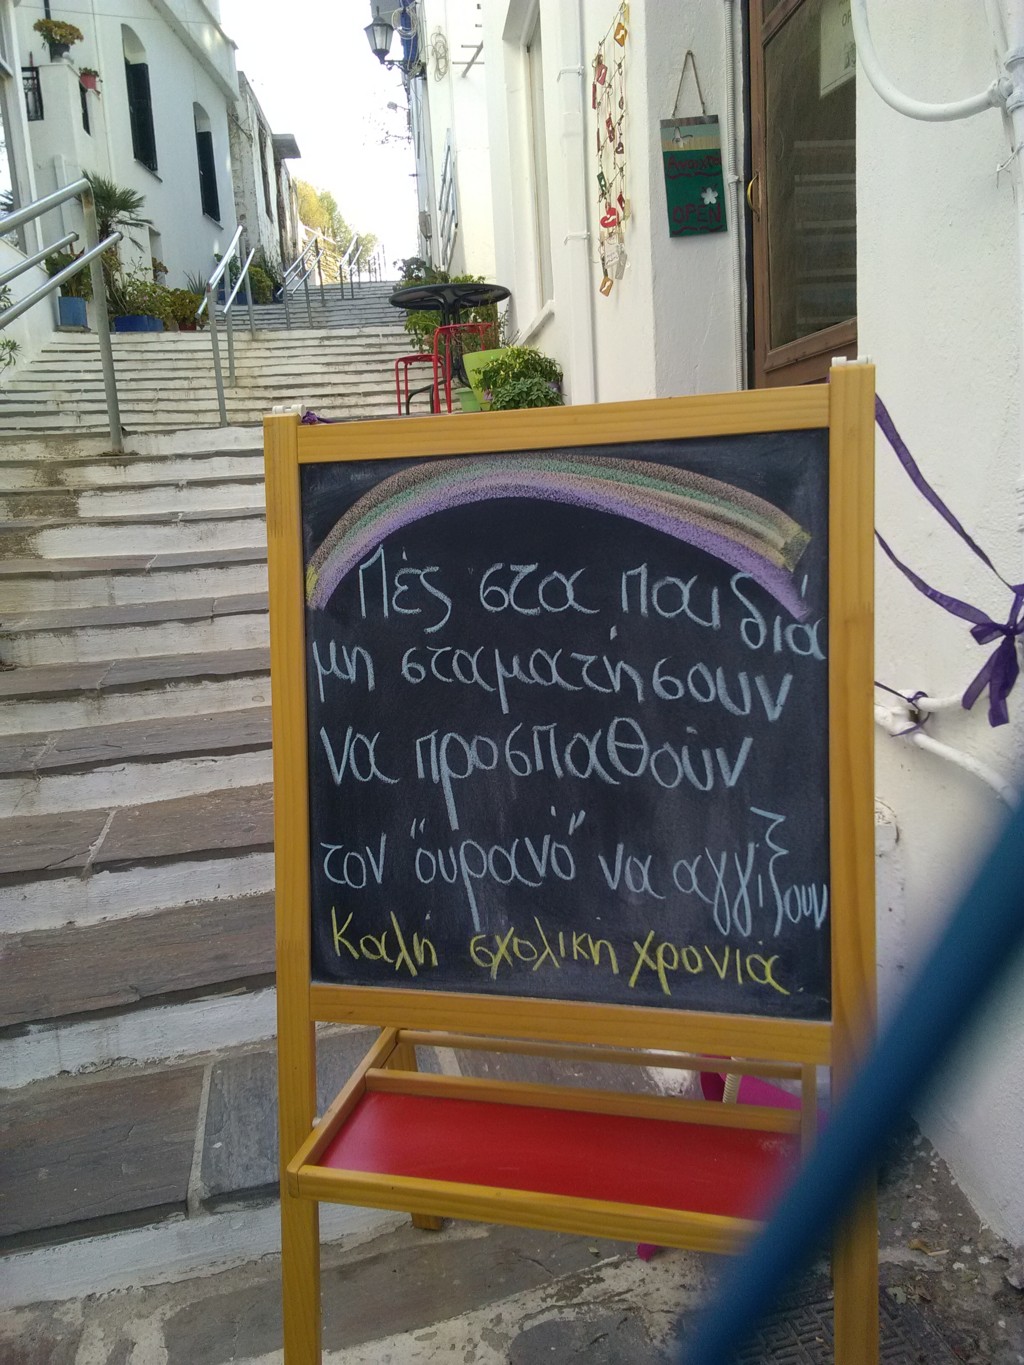 OPEN
Πές στα παιδιά
μη σταματήσουν
να προσπαθούν
τον "ουρανό" να αγγίξουν
Καλή σχολική χρονιά.